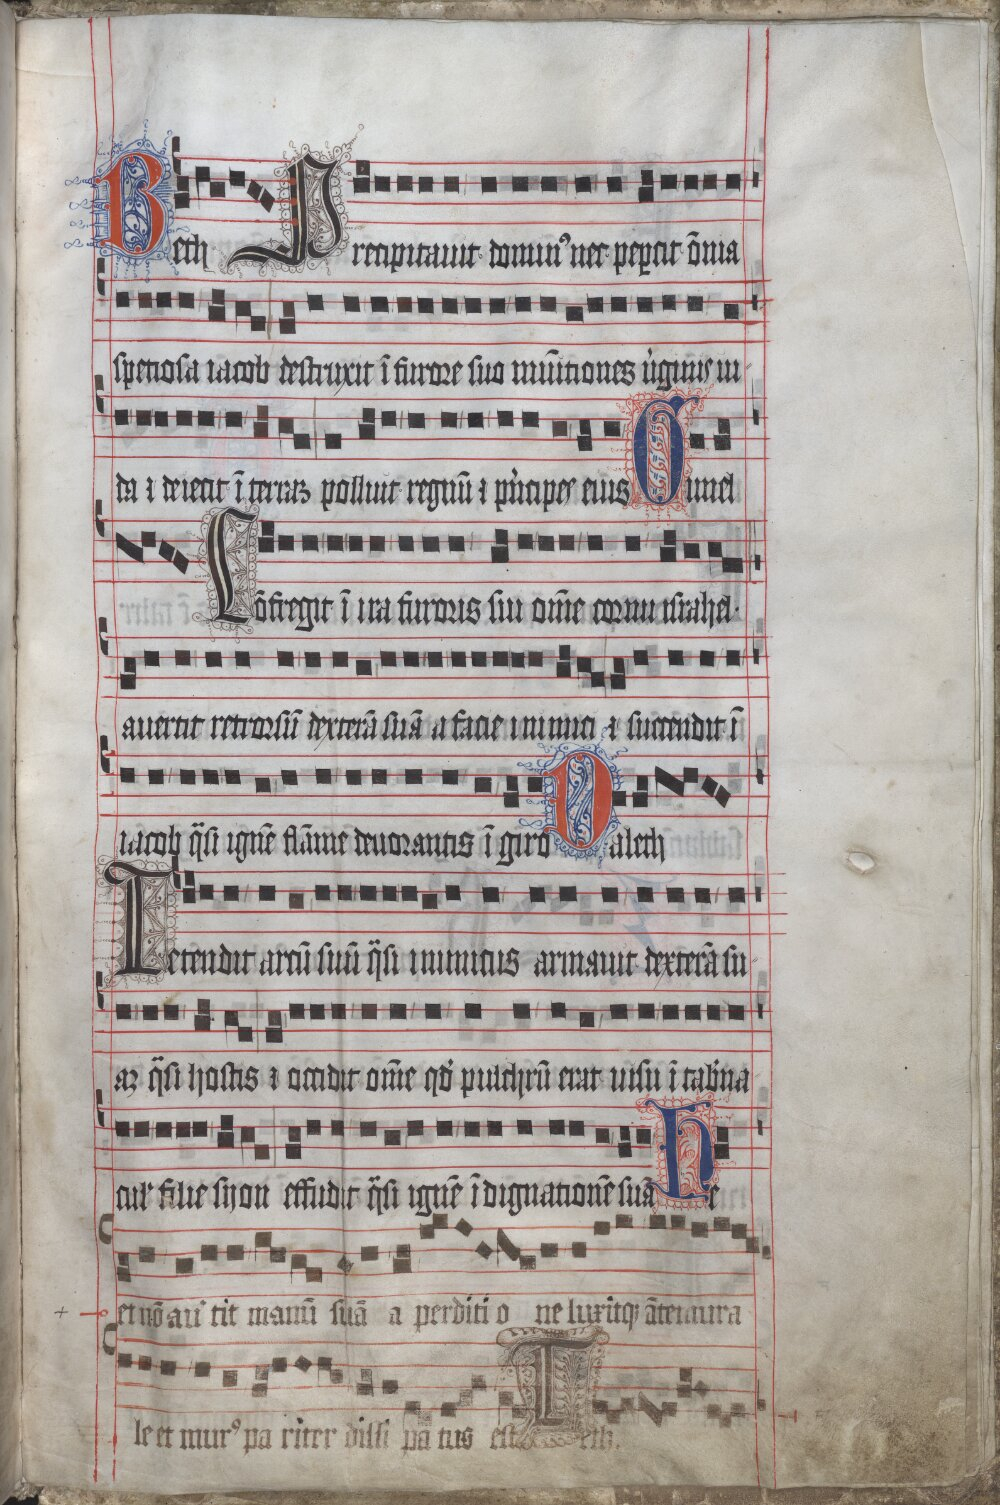 Beth Precipitauit dominꝰ nec pepcit ōnia
spetiosa iacob destruxit ī furore suo mūitiones uirginis iu
da ⁊ deiecit ī terraꝫ polluit regnū ⁊ prīcipes eius Gimel
Cōfregit ī ira furoris sui om̄e cornu israhel
auertit retrorsū dexterā suā a facie inimici ⁊ succendit ī
iacob q̄si ignē flāme deuorantis ī giro Daleth
Tetendit arcū suū q̄si inimicus armauit dexterā su
aꝫ q̄si hostis ⁊ occidit om̄e qd̓ pulchrū erat uisu ī tab̓na
cul̓ filie syon effudit q̄si ignē īdignationē suā He
et nō au̓tit manū suā a perditione luxitqꝫ āteimura
le et murꝰ pariter dissipatus est Teth.